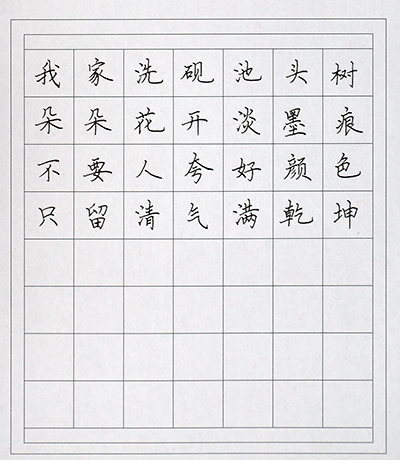 我家洗砚池头树
朵朵花开淡墨痕
不要人夸好颜色
只留清气满乾坤